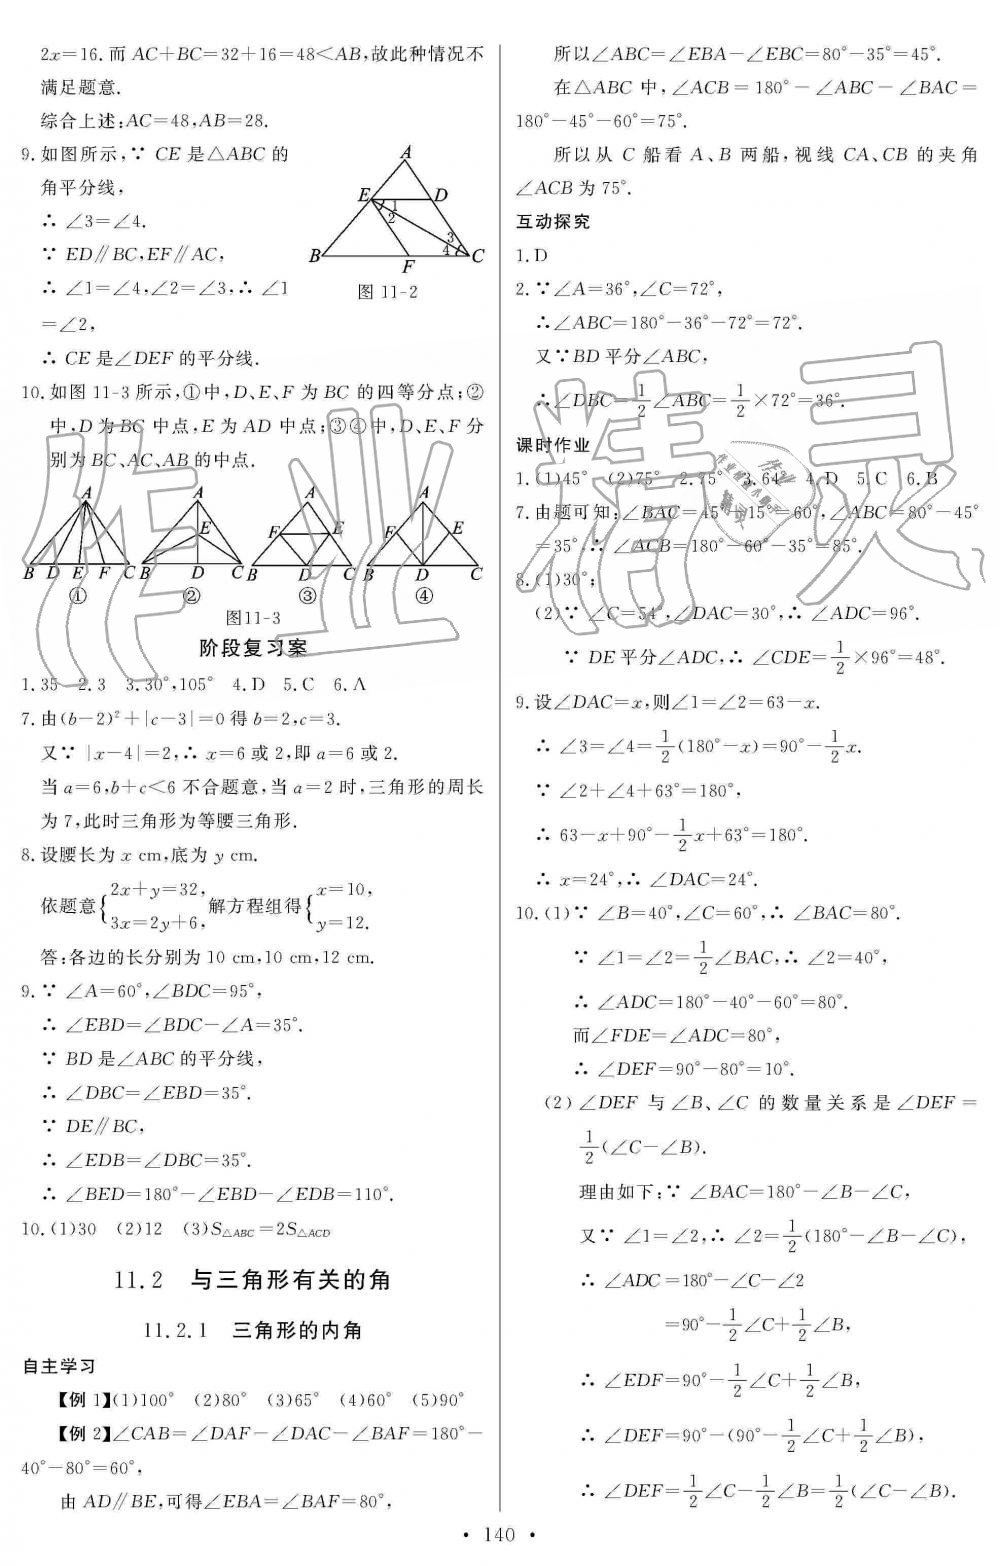 2x=16.而 AC+BC=32+16=48<AB,故此种情况不
满足题意.
综合上述:AC=48,AB=28.
9.如图所示,∵ CE 是△ABC 的
角平分线,
∴ ∠3=∠4.
∵ ED∥BC,EF∥AC,
∴ ∠1=∠4,∠2=∠3,∴ ∠1
=∠2,
∴ CE 是∠DEF 的平分线.
A
E
D
1
2
3
4
B
F
C
图 11-2
10.如图 11-3 所示,①中,D、E、F 为 BC 的四等分点;②
中,D 为 BC 中点,E 为 AD 中点;③④中,D、E、F 分
别为 BC、AC、AB 的中点.
A A A A
E F E F E
B D E F C B D C B D C B D C
① ② ③ ④
图11-3
阶段复习案
1.35 2.3 3.30°,105° 4.D 5.C 6.A
7.由(b-2)²+|c-3|=0 得 b=2,c=3.
又∵ |x-4|=2,∴ x=6 或 2,即 a=6 或 2.
当 a=6,b+c<6 不合题意,当 a=2 时,三角形的周长
为 7,此时三角形为等腰三角形.
8.设腰长为 x cm,底为 y cm.
依题意{2x+y=32, 3x=2y+6, 解方程组得{x=10, y=12.
答:各边的长分别为 10 cm,10 cm,12 cm.
9.∵ ∠A=60°,∠BDC=95°,
∴ ∠EBD=∠BDC-∠A=35°.
∵ BD 是∠ABC 的平分线,
∴ ∠DBC=∠EBD=35°.
∵ DE∥BC,
∴ ∠EDB=∠DBC=35°.
∴ ∠BED=180°-∠EBD-∠EDB=110°.
10.(1)30 (2)12 (3)S△ABC=2S△ACD
11.2 与三角形有关的角
11.2.1 三角形的内角
自主学习
【例 1】(1)100° (2)80° (3)65° (4)60° (5)90°
【例 2】∠CAB=∠DAF-∠DAC-∠BAF=180°-
40°-80°=60°,
由 AD∥BE,可得∠EBA=∠BAF=80°,
所以∠ABC=∠EBA-∠EBC=80°-35°=45°.
在△ABC 中,∠ACB=180°-∠ABC-∠BAC=
180°-45°-60°=75°.
所以从 C 船看 A、B 两船,视线 CA、CB 的夹角
∠ACB 为 75°.
互动探究
1.D
2.∵∠A=36°,∠C=72°,
∴∠ABC=180°-36°-72°=72°.
又∵BD 平分∠ABC,
∴∠DBC=1/2∠ABC=1/2×72°=36°.
课时作业
1.(1)45° (2)75° 2.75° 3.64° 4.D 5.C 6.B
7.由题可知:∠BAC=45°+15°=60°,∠ABC=80°-45°
=35°,∴ ∠ACB=180°-60°-35°=85°.
8.(1)30°;
(2)∵ ∠C=54°,∠DAC=30°,∴ ∠ADC=96°.
∵ DE 平分∠ADC,∴ ∠CDE=1/2×96°=48°.
9.设∠DAC=x,则∠1=∠2=63-x.
∴ ∠3=∠4=1/2(180°-x)=90°-1/2x.
∵ ∠2+∠4+63°=180°,
∴ 63-x+90°-1/2x+63°=180°.
∴ x=24°,∴ ∠DAC=24°.
10.(1)∵ ∠B=40°,∠C=60°,∴ ∠BAC=80°.
∵ ∠1=∠2=1/2∠BAC,∴ ∠2=40°,
∴ ∠ADC=180°-40°-60°=80°.
而∠FDE=∠ADC=80°,
∴ ∠DEF=90°-80°=10°.
(2) ∠DEF 与∠B、∠C 的数量关系是∠DEF=
1/2(∠C-∠B).
理由如下:∵ ∠BAC=180°-∠B-∠C,
又∵ ∠1=∠2,∴ ∠2=1/2(180°-∠B-∠C),
∴ ∠ADC=180°-∠C-∠2
=90°-1/2∠C+1/2∠B,
∴ ∠EDF=90°-1/2∠C+1/2∠B,
∴ ∠DEF=90°-(90°-1/2∠C+1/2∠B),
∴ ∠DEF=1/2∠C-1/2∠B=1/2(∠C-∠B).
• 140 •
作业精灵